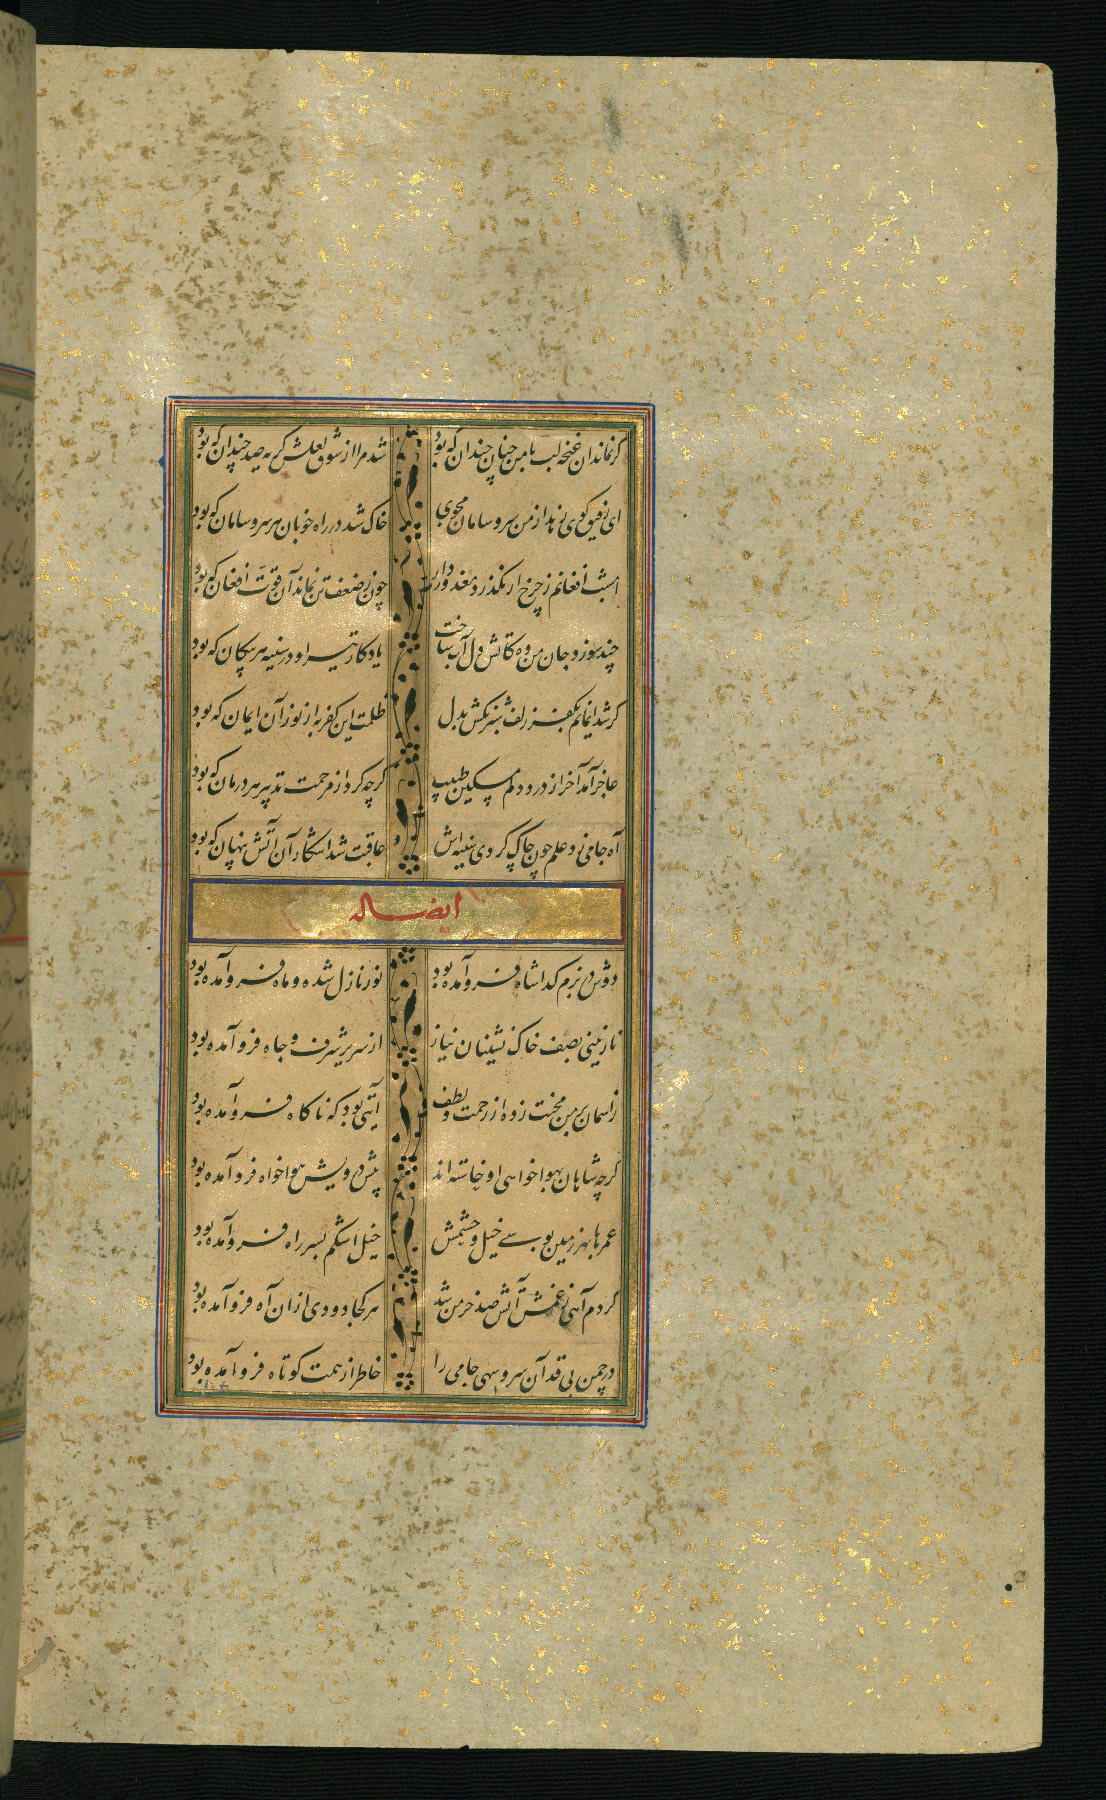 گر نماند آن غنچه لب با من چنان چندان که بود شد مرا از شوق لعلش گریه صد چندان که بود
ای رفیق کوی زهد از من سر و سامان مجوی خاک شد در راه خوبان هر سر و سامان که بود
امشب افغانم ز چرخ ار نگذرد معذور دار چون ز ضعف تن نماند آن قوت افغان که بود
چند سوزد جان من وه کاتش دل آب ساخت یادگار تیر او در سینه هر پیکان که بود
گر شد ایمانم بکفر زلف شبرنگش بدل ظلمت این کفر به از نور آن ایمان که بود
عاجز آمد آخر از درد دلم مسکین طبیب گرچه کرد از مرحمت تدبیر هر درمان که بود
آه جامی زد علم چون چاک کردی سینه اش عاقبت شد آشکار آن آتش پنهان که بود
ایضا له
دوش در بزم گدا شاه فرو آمده بود نور نازل شده و ماه فرو آمده بود
نازنینی بصف خاک نشینان نیاز از سریر شرف و جاه فرو آمده بود
ز اسمان بر من محنت زده از رحمت و لطف آیتی بود که ناگاه فرو آمده بود
گرچه شاهان بهواخواهی او خاسته اند پیش درویش هواخواه فرو آمده بود
عمرها بهر زمین بوسی خیل و حشمش خیل اشکم بسر راه فرو آمده بود
کردم آهی ز غمش آتش صد خرمن شد هر کجا دودی از ان آه فرو آمده بود
در چمن بی قد آن سرو سهی جامی را خاطر از همت کوتاه فرو آمده بود